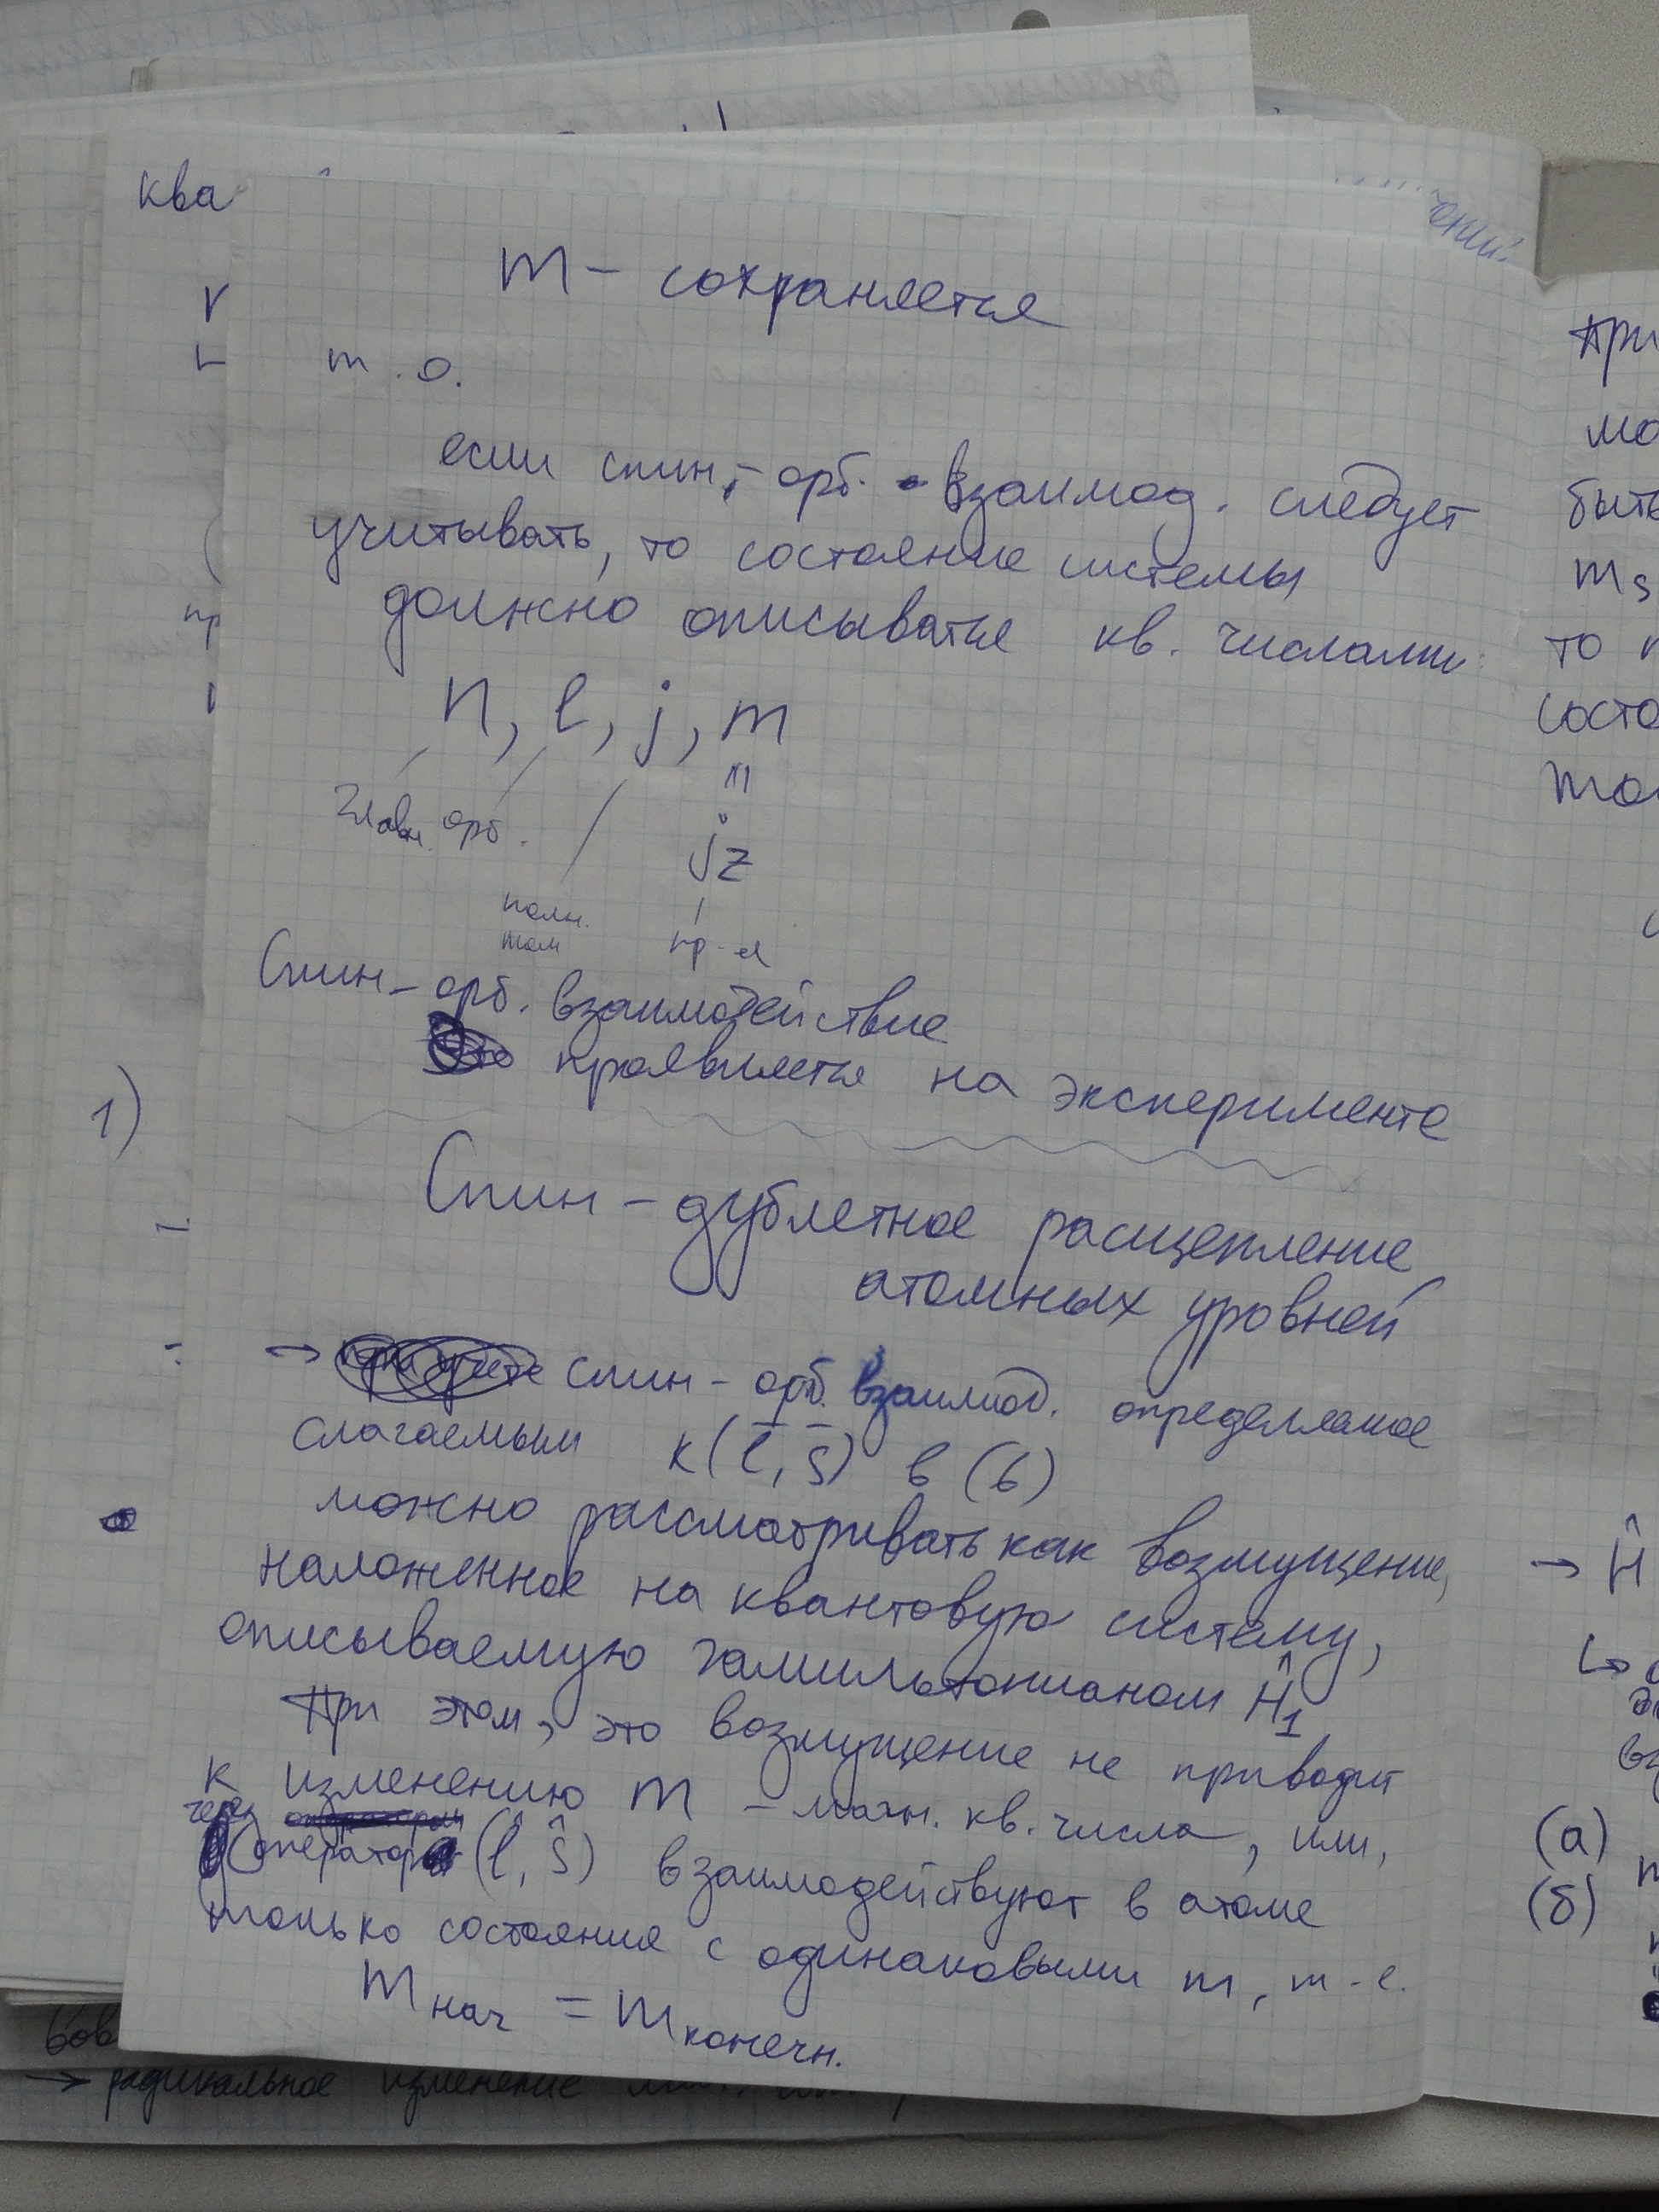 ква
m – сохраняется
т.о.
если спин.-орб. взаимод. следует
учитывать, то состояние системы
должно описываться кв. числами:
n, l, j, m
главн. орб.
jz
полн. пр-я
мом
Спин-орб. взаимодействие
проявляется на эксперименте
1)
Спин-дублетное расщепление
атомных уровней
→ спин-орб. взаимод. определяемое
слагаемым к(l̄, s̄) в (6)
можно рассматривать как возмущение,
наложенное на квантовую систему,
описываемую гамильтонианом Ĥ1
При этом, это возмущение не приводит
к изменению m – магн. кв. числа, или,
через
оператор (l̂, ŝ) взаимодействуют в атоме
только состояния с одинаковыми m, т-е.
m нач = m конечн.
→ радикальное изменение
ений.
при
мо
быть
ms
то
состо
→ Ĥ
(а)
(б)